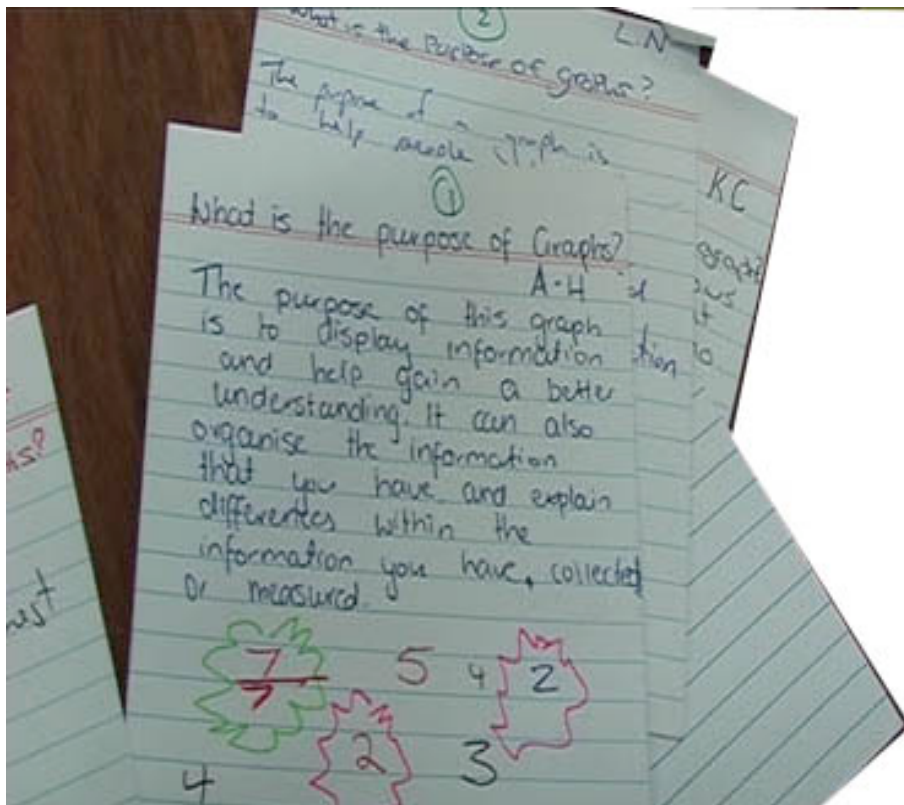 2
L.N
What is the purpose of graphs?
The purpose of a graph is
to help people
1
What is the purpose of Graphs?
A-H
The purpose of this graph
is to display information
and help gain a better
understanding. It can also
organise the information
that you have and explain
differences within the
information you have, collected
or measured.
7
7
5
4
2
2
3
4
KC